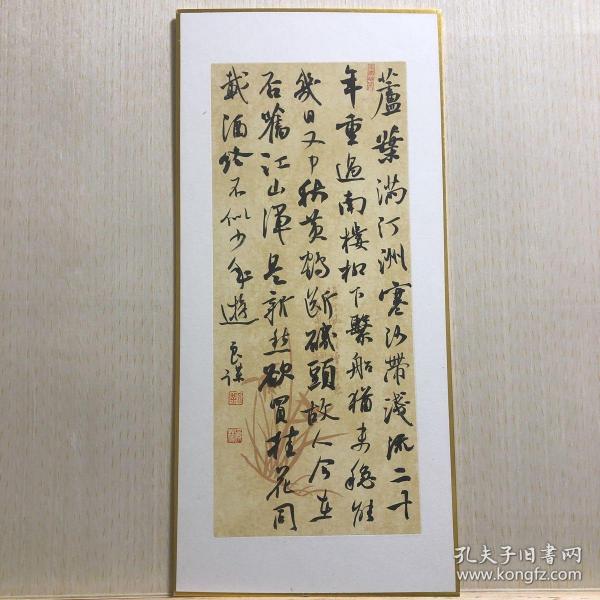 蘆葉滿汀洲寒沙帶淺流二十
年重過南樓柳下繫船猶未穩能
幾日又中秋黃鶴斷磯頭故人今在
否舊江山渾是新愁欲買桂花同
載酒終不似少年遊 良謀
孔夫子旧书网
www.kongfz.com